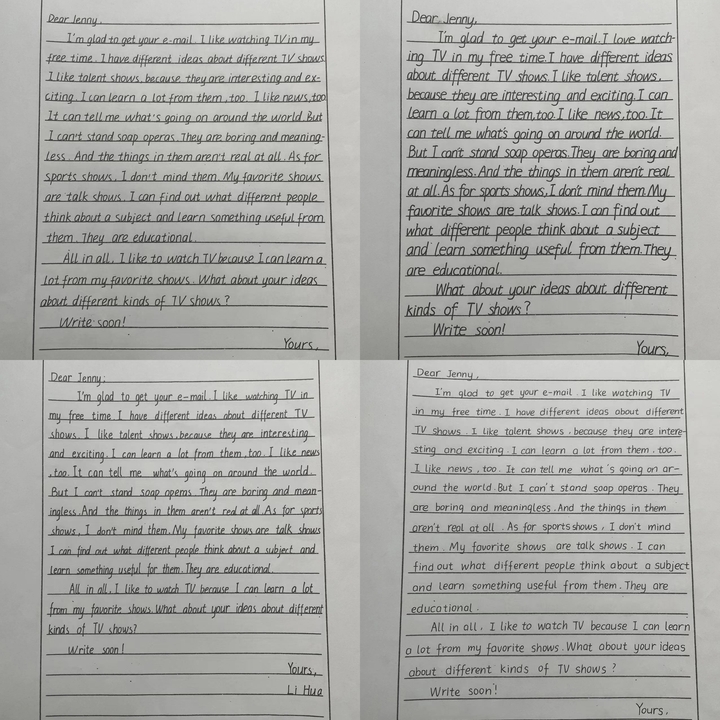 Dear Jenny,
I'm glad to get your e-mail. I like watching TV in my
free time. I have different ideas about different TV shows.
I like talent shows, because they are interesting and ex-
citing. I can learn a lot from them, too. I like news, too.
It can tell me what's going on around the world. But
I can't stand soap operas. They are boring and meaning-
less. And the things in them aren't real at all. As for
sports shows, I don't mind them. My favorite shows
are talk shows. I can find out what different people
think about a subject and learn something useful from
them. They are educational.
All in all, I like to watch TV because I can learn a
lot from my favorite shows. What about your ideas
about different kinds of TV shows?
Write soon!
Yours,
Dear Jenny,
I'm glad to get your e-mail. I love watch-
ing TV in my free time. I have different ideas
about different TV shows. I like talent shows,
because they are interesting and exciting. I can
learn a lot from them, too. I like news, too. It
can tell me what's going on around the world.
But I can't stand soap operas. They are boring and
meaningless. And the things in them aren't real
at all. As for sports shows, I don't mind them. My
favorite shows are talk shows. I can find out
what different people think about a subject
and learn something useful from them. They
are educational.
What about your ideas about different
kinds of TV shows?
Write soon!
Yours,
Dear Jenny,
I'm glad to get your e-mail. I like watching TV in
my free time. I have different ideas about different TV
shows. I like talent shows, because they are interesting
and exciting. I can learn a lot from them, too. I like news
, too. It can tell me what's going on around the world.
But I can't stand soap operas. They are boring and mean-
ingless. And the things in them aren't real at all. As for sports
shows, I don't mind them. My favorite shows are talk shows
I can find out what different people think about a subject and
learn something useful for them. They are educational.
All in all, I like to watch TV because I can learn a lot
from my favorite shows. What about your ideas about different
kinds of TV shows?
Write soon!
Yours,
Li Hua
Dear Jenny,
I'm glad to get your e-mail. I like watching TV
in my free time. I have different ideas about different
TV shows. I like talent shows, because they are intere-
sting and exciting. I can learn a lot from them, too.
I like news, too. It can tell me what's going on ar-
ound the world. But I can't stand soap operas. They
are boring and meaningless. And the things in them
aren't real at all. As for sports shows, I don't mind
them. My favorite shows are talk shows. I can
find out what different people think about a subject
and learn something useful from them. They are
educational.
All in all, I like to watch TV because I can learn
a lot from my favorite shows. What about your ideas
about different kinds of TV shows?
Write soon!
Yours,